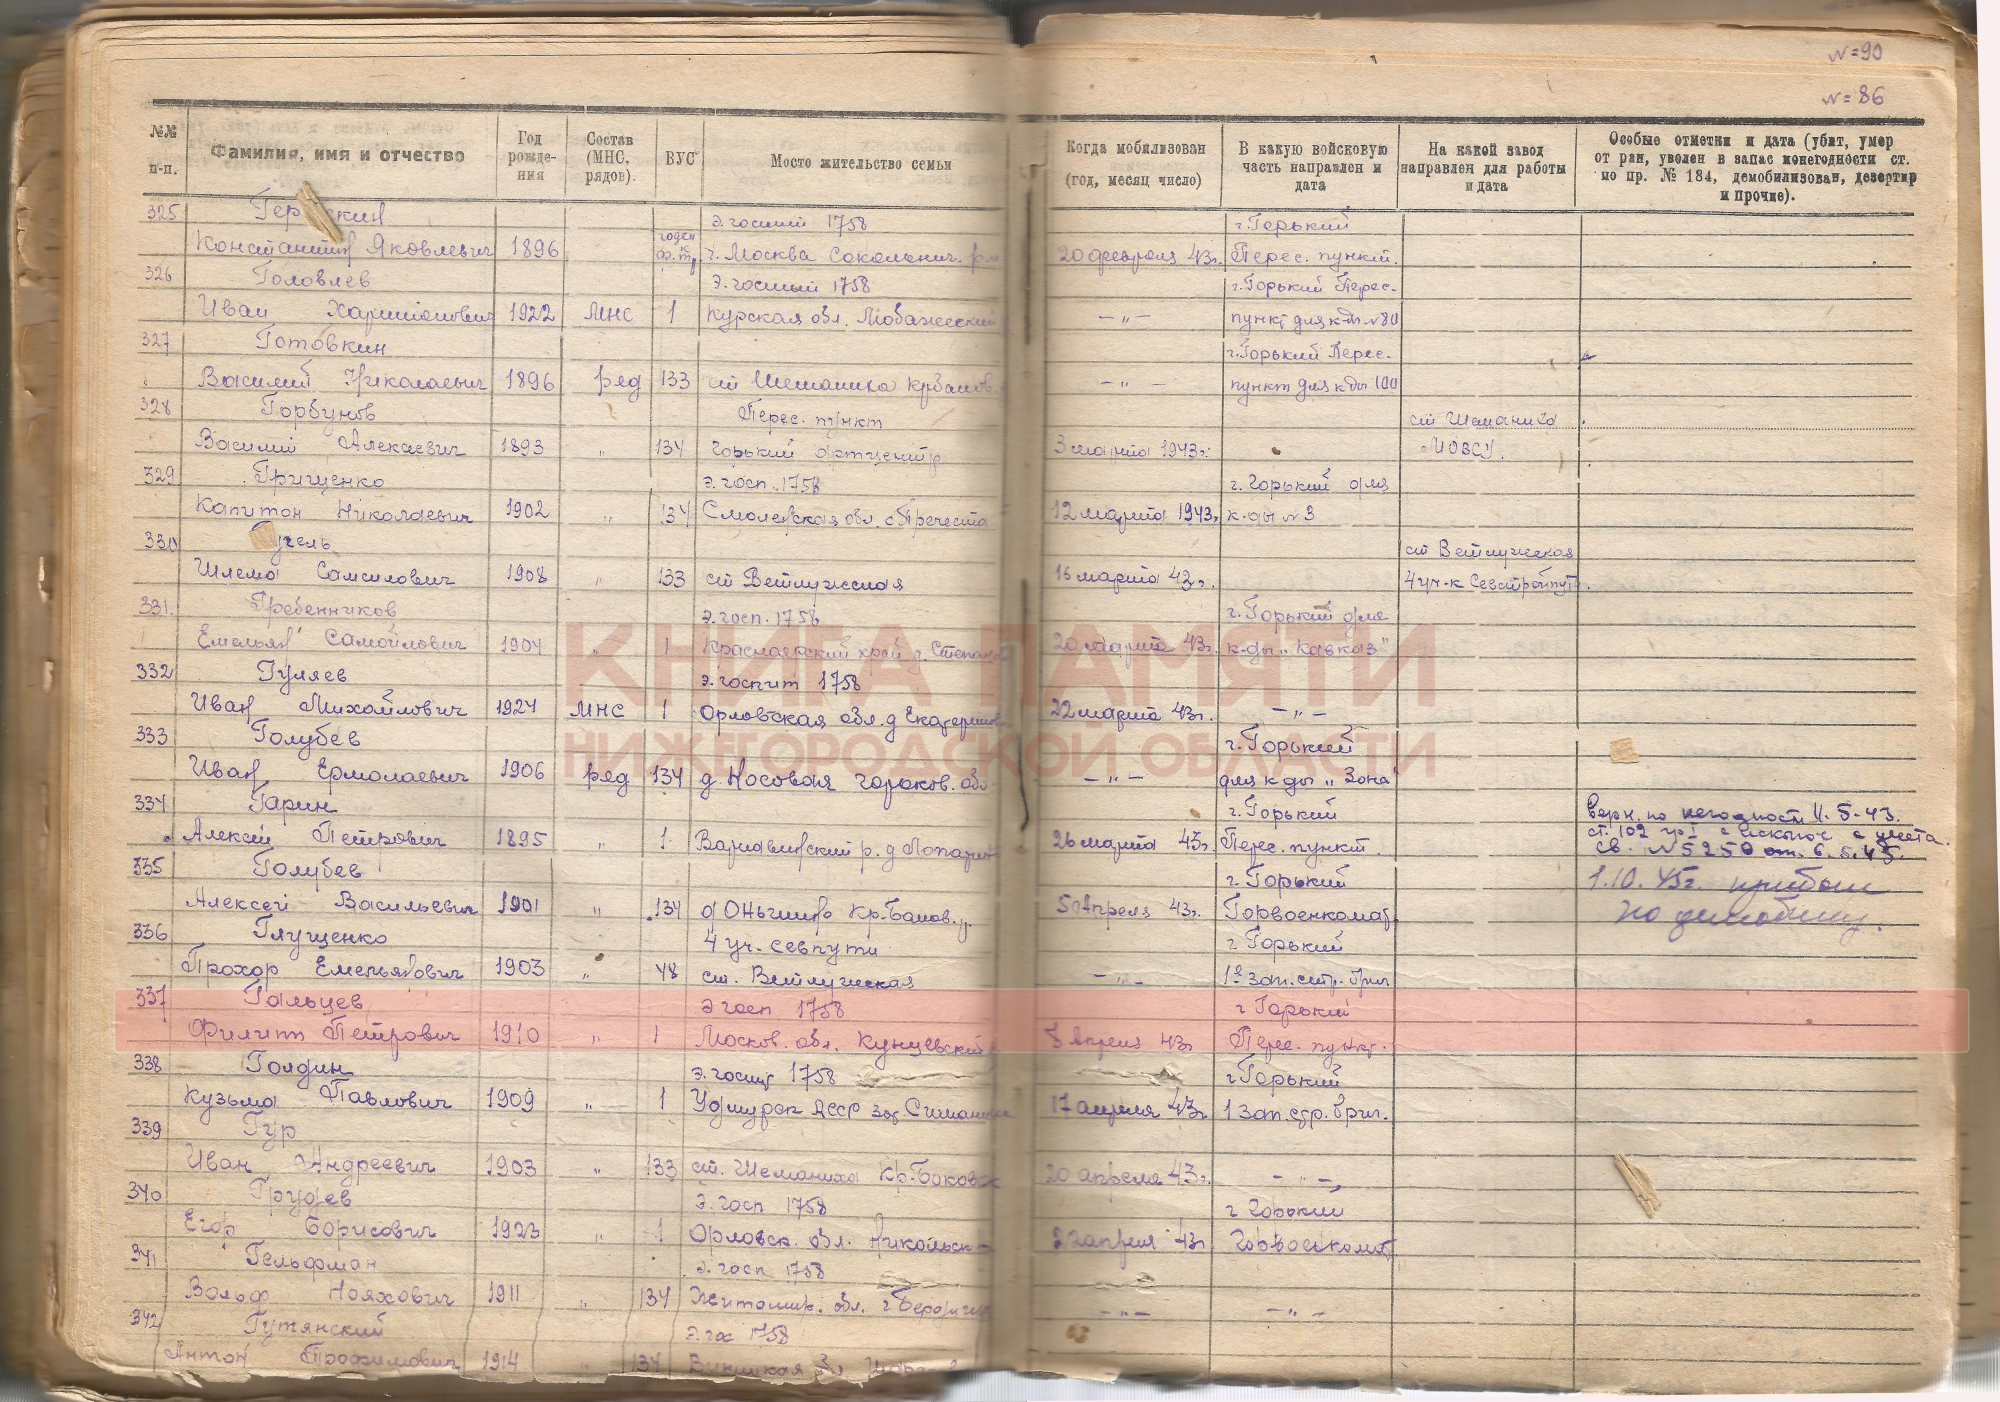 №=90
№=86
№№ п-п.
Фамилия, имя и отчество
Год рожде-ния
Состав (МНС, рядов).
ВУС
Место жительство семьи
Когда мобилизован (год, месяц число)
В какую войсковую часть направлен и дата
На какой завод направлен для работы и дата
Особые отметки и дата (убит, умер от ран, уволен в запас конегодности ст. по пр. № 184, демобилизован, дезертир и прочие).
325 э. госпит 1758 г. Горький
Константин Яковлевич 1896 годен к ф. тр г. Москва Сокольнич. р. 20 февраля 43г. Перес. пункт.
326 Головлев э. госпит 1758 г. Горький Перес.
Иван 1922 МНС 1 Курская обл. — „ — пункт для к-ды №80
327 Готовкин г. Горький Перес.
Василий Николаевич 1896 ряд 133 ст Шеманиха — „ — пункт для к-ды 100
328 Горбунов Перес. пункт ст Шеманиха
Василий 1893 „ 134 Горький 3 марта 1943г.
329 Грищенко э. госп. 1758 г. Горький для
Капитон Николаевич 1902 „ 134 Смоленская обл. 12 марта 1943г. к-ды №3
330 ст Ветлужская
Шлема Самсилович 1908 „ 133 ст Ветлужская 16 марта 43г. 4 уч-к
331. Гребенников э. госп. 1758 г. Горький для
Емельян Самойлович 1904 „ 1 Красноярский край д. 20 марта 43г. к-ды „Кавказ"
332 Гуляев э. госпит 1758
Иван Михайлович 1924 МНС 1 Орловская обл. д 22 марта 43г. — „ —
333 Голубев г. Горький
Иван Ермолаевич 1906 ряд 134 д. Носовая горьков. обл — „ — для к-ды „Зона"
334 Гарин г. Горький верн. по негодности 11.5-43.
Алексей Петрович 1895 „ 1 Варнавинский р. д 26 марта 43г. Перес. пункт. ст. 102 учета.
св. №5250 от. 6.5.45.
335 Голубев г. Горький 1.10.45г. прибыл
Алексей Васильевич 1901 „ 134 Кр-Баков. 5 Апреля 43г. Горвоенкомат по демобилиз.
336 Глущенко 4 уч. севпути г Горький
Прохор Емельянович 1903 „ 48 ст. Ветлужская — „ — 1й зап. стр. бриг
337 Гальцев э госп 1758 г Горький
Филипп Петрович 1910 „ 1 Москов. обл. Кунцевский Апреля 43г Перес. пункт.
338 Голдин э. госпит 1758 г Горький
Кузьма Павлович 1909 „ 1 Удмурск АССР 17 апреля 43г 1 зап. стр. бриг.
339 Гур
Иван Андреевич 1903 „ 133 ст. Шеманиха Кр-Баковс 20 апреля 43г. — „ —
340 Груздев э. госп 1758 г Горький
Егор Борисович 1923 „ 1 Орловск. обл. Никольск 22 апреля 43г Горвоенкомат
341 Гельфман э. госп 1758
Вольф Нояхович 1911 „ 134 Житомир. обл. г — „ — — „ —
342 Гутянский э. гос 1758
Антон Трофимович 1914 „ 134
КНИГА ПАМЯТИ
НИЖЕГОРОДСКОЙ ОБЛАСТИ